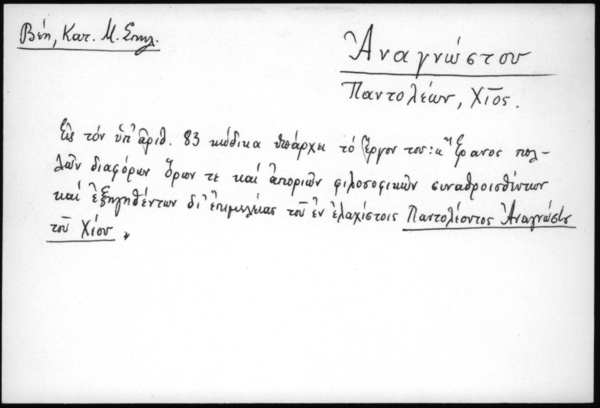 Βέη, Κατ. Μ. Σπηλ.
Ἀναγνώστου
Παντολέων, Χῖος.
Εἰς τόν ὑπ' ἀριθ. 83 κώδικα ὑπάρχει τό ἔργον του: "Ἔρανος πολ-
λῶν διαφόρων ὅρων τε καί ἀποριῶν φιλοσοφικῶν συναθροισθέντων
καί ἐξηγηθέντων δι' ἐπιμελείας τοῦ ἐν ἐλαχίστοις Παντολέοντος Ἀναγνώστου
τοῦ Χίου.